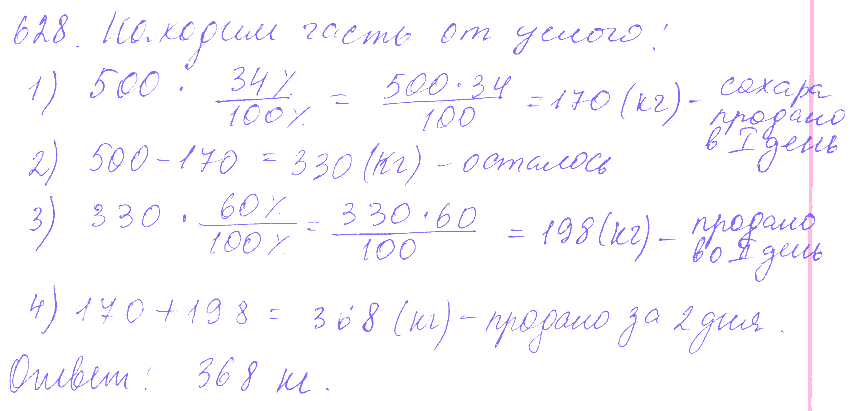 628. Находим часть от целого:
1) 500 · 34%/100% = 500·34/100 = 170 (кг) – сахара продано в I день
2) 500 – 170 = 330 (кг) – осталось
3) 330 · 60%/100% = 330·60/100 = 198 (кг) – продано во II день
4) 170 + 198 = 368 (кг) – продано за 2 дня.
Ответ: 368 кг.